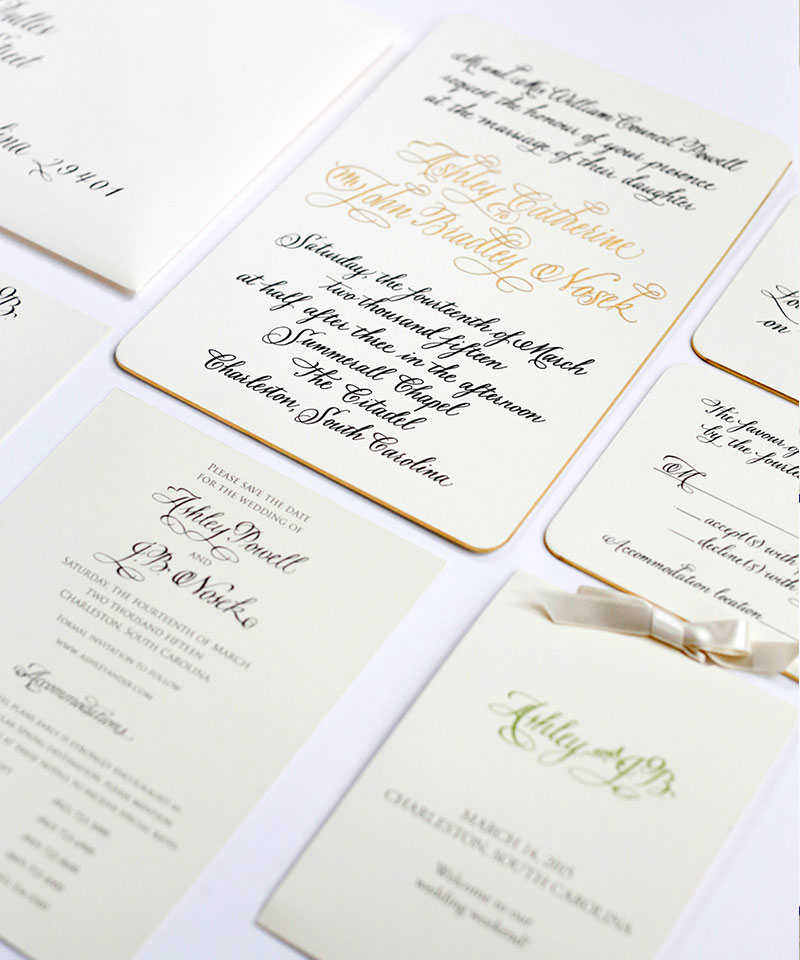 29401
Mr. and Mrs. William Council Dowell
request the honour of your presence
at the marriage of their daughter
Ashley Catherine
to
Mr. John Bradley Nosek
Saturday, the fourteenth of March
two thousand fifteen
at half after three in the afternoon
Summerall Chapel
The Citadel
Charleston, South Carolina
on
The favour of
by the
M
accept(s) with
decline(s) with
Accommodation location
PLEASE SAVE THE DATE
FOR THE WEDDING OF
Ashley Dowell
AND
J.B. Nosek
SATURDAY, THE FOURTEENTH OF MARCH
TWO THOUSAND FIFTEEN
CHARLESTON, SOUTH CAROLINA
FORMAL INVITATION TO FOLLOW
Accommodations
PLANS EARLY IS STRONGLY ENCOURAGED AS
SPRING DESTINATION. PLEASE MENTION
AT THESE HOTELS TO RECEIVE SPECIAL RATES.
Ashley and J.B.
MARCH 14, 2015
CHARLESTON, SOUTH CAROLINA
Welcome to our
wedding weekend!